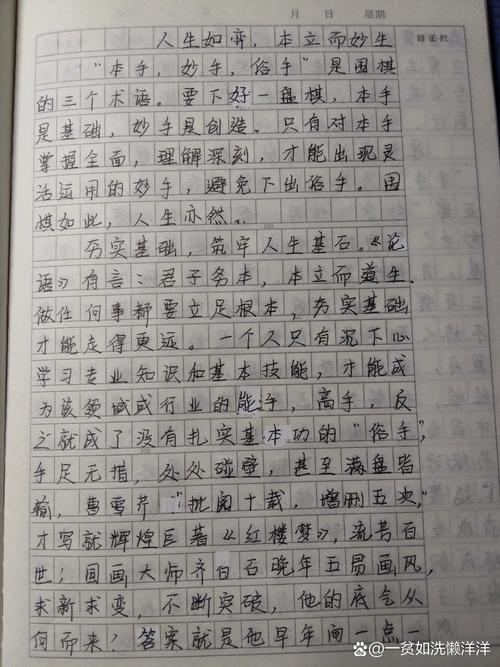 月 日 星期
人生如弈，本立而妙生
“本手，妙手，俗手”是围棋
的三个术语。要下好一盘棋，本手
是基础，妙手是创造。只有对本手
掌握全面，理解深刻，才能出现灵
活运用的妙手，避免下出俗手。围
棋如此，人生亦然。
100
夯实基础，筑牢人生基石。《论
语》有言：君子务本，本立而道生.
做任何事都要立足根本，夯实基础
才能走得更远。一个人只有沉下心
学习专业知识和基本技能，才能成
为该领域或行业的能手，高手，反
之就成了没有扎实基本功的“俗手”，
手足无措，处处碰壁，甚至满盘皆
输，曹雪芹“批阅十载，增删五次，”
才写就辉煌巨著《红楼梦》，流芳百
世；国画大师齐白石晚年五易画风，
求新求变，不断突破，他的底气从
何而来！答案就是他早年间一点一
@一贫如洗懒洋洋